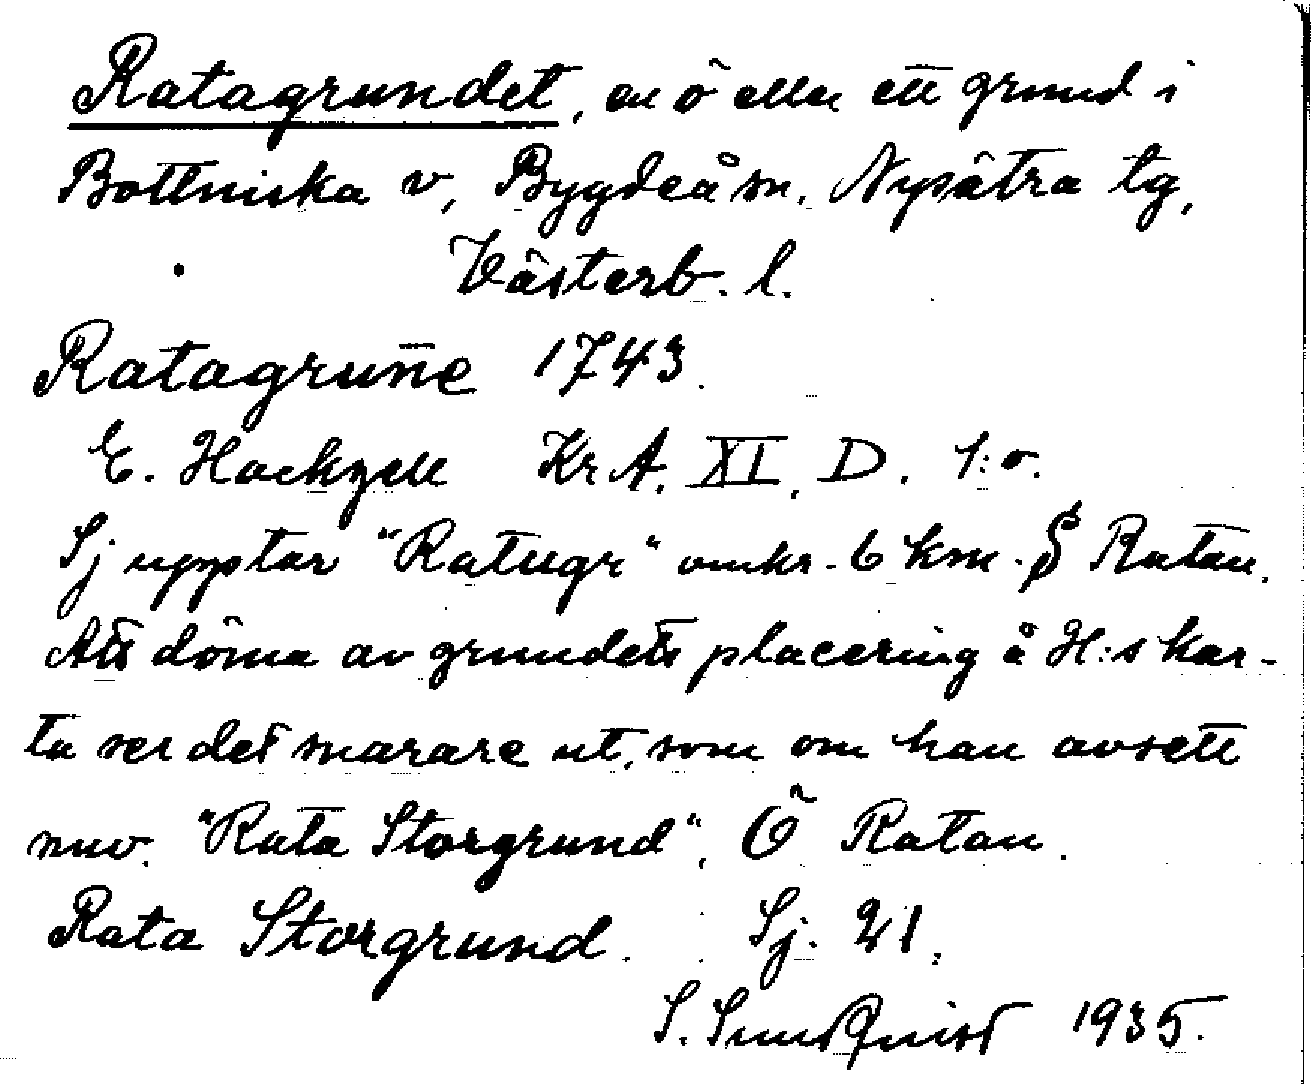 Ratagrundet, en ö eller ett grund i
Bottniska v, Bygdeå sn. Nysätra tg,
Västerb. l.
Ratagrun̄e 1743.
E. Hackzell KrA. XI. D. 1:o.
Sj upptar "Ratugr" omkr. 6 km. S Ratan.
Att döma av grundets placering å H:s kar-
ta ser det snarare ut, som om han avsett
nuv. "Rata Storgrund", Ö Ratan.
Rata Storgrund. Sj. 21.
S. Sundquist 1935.